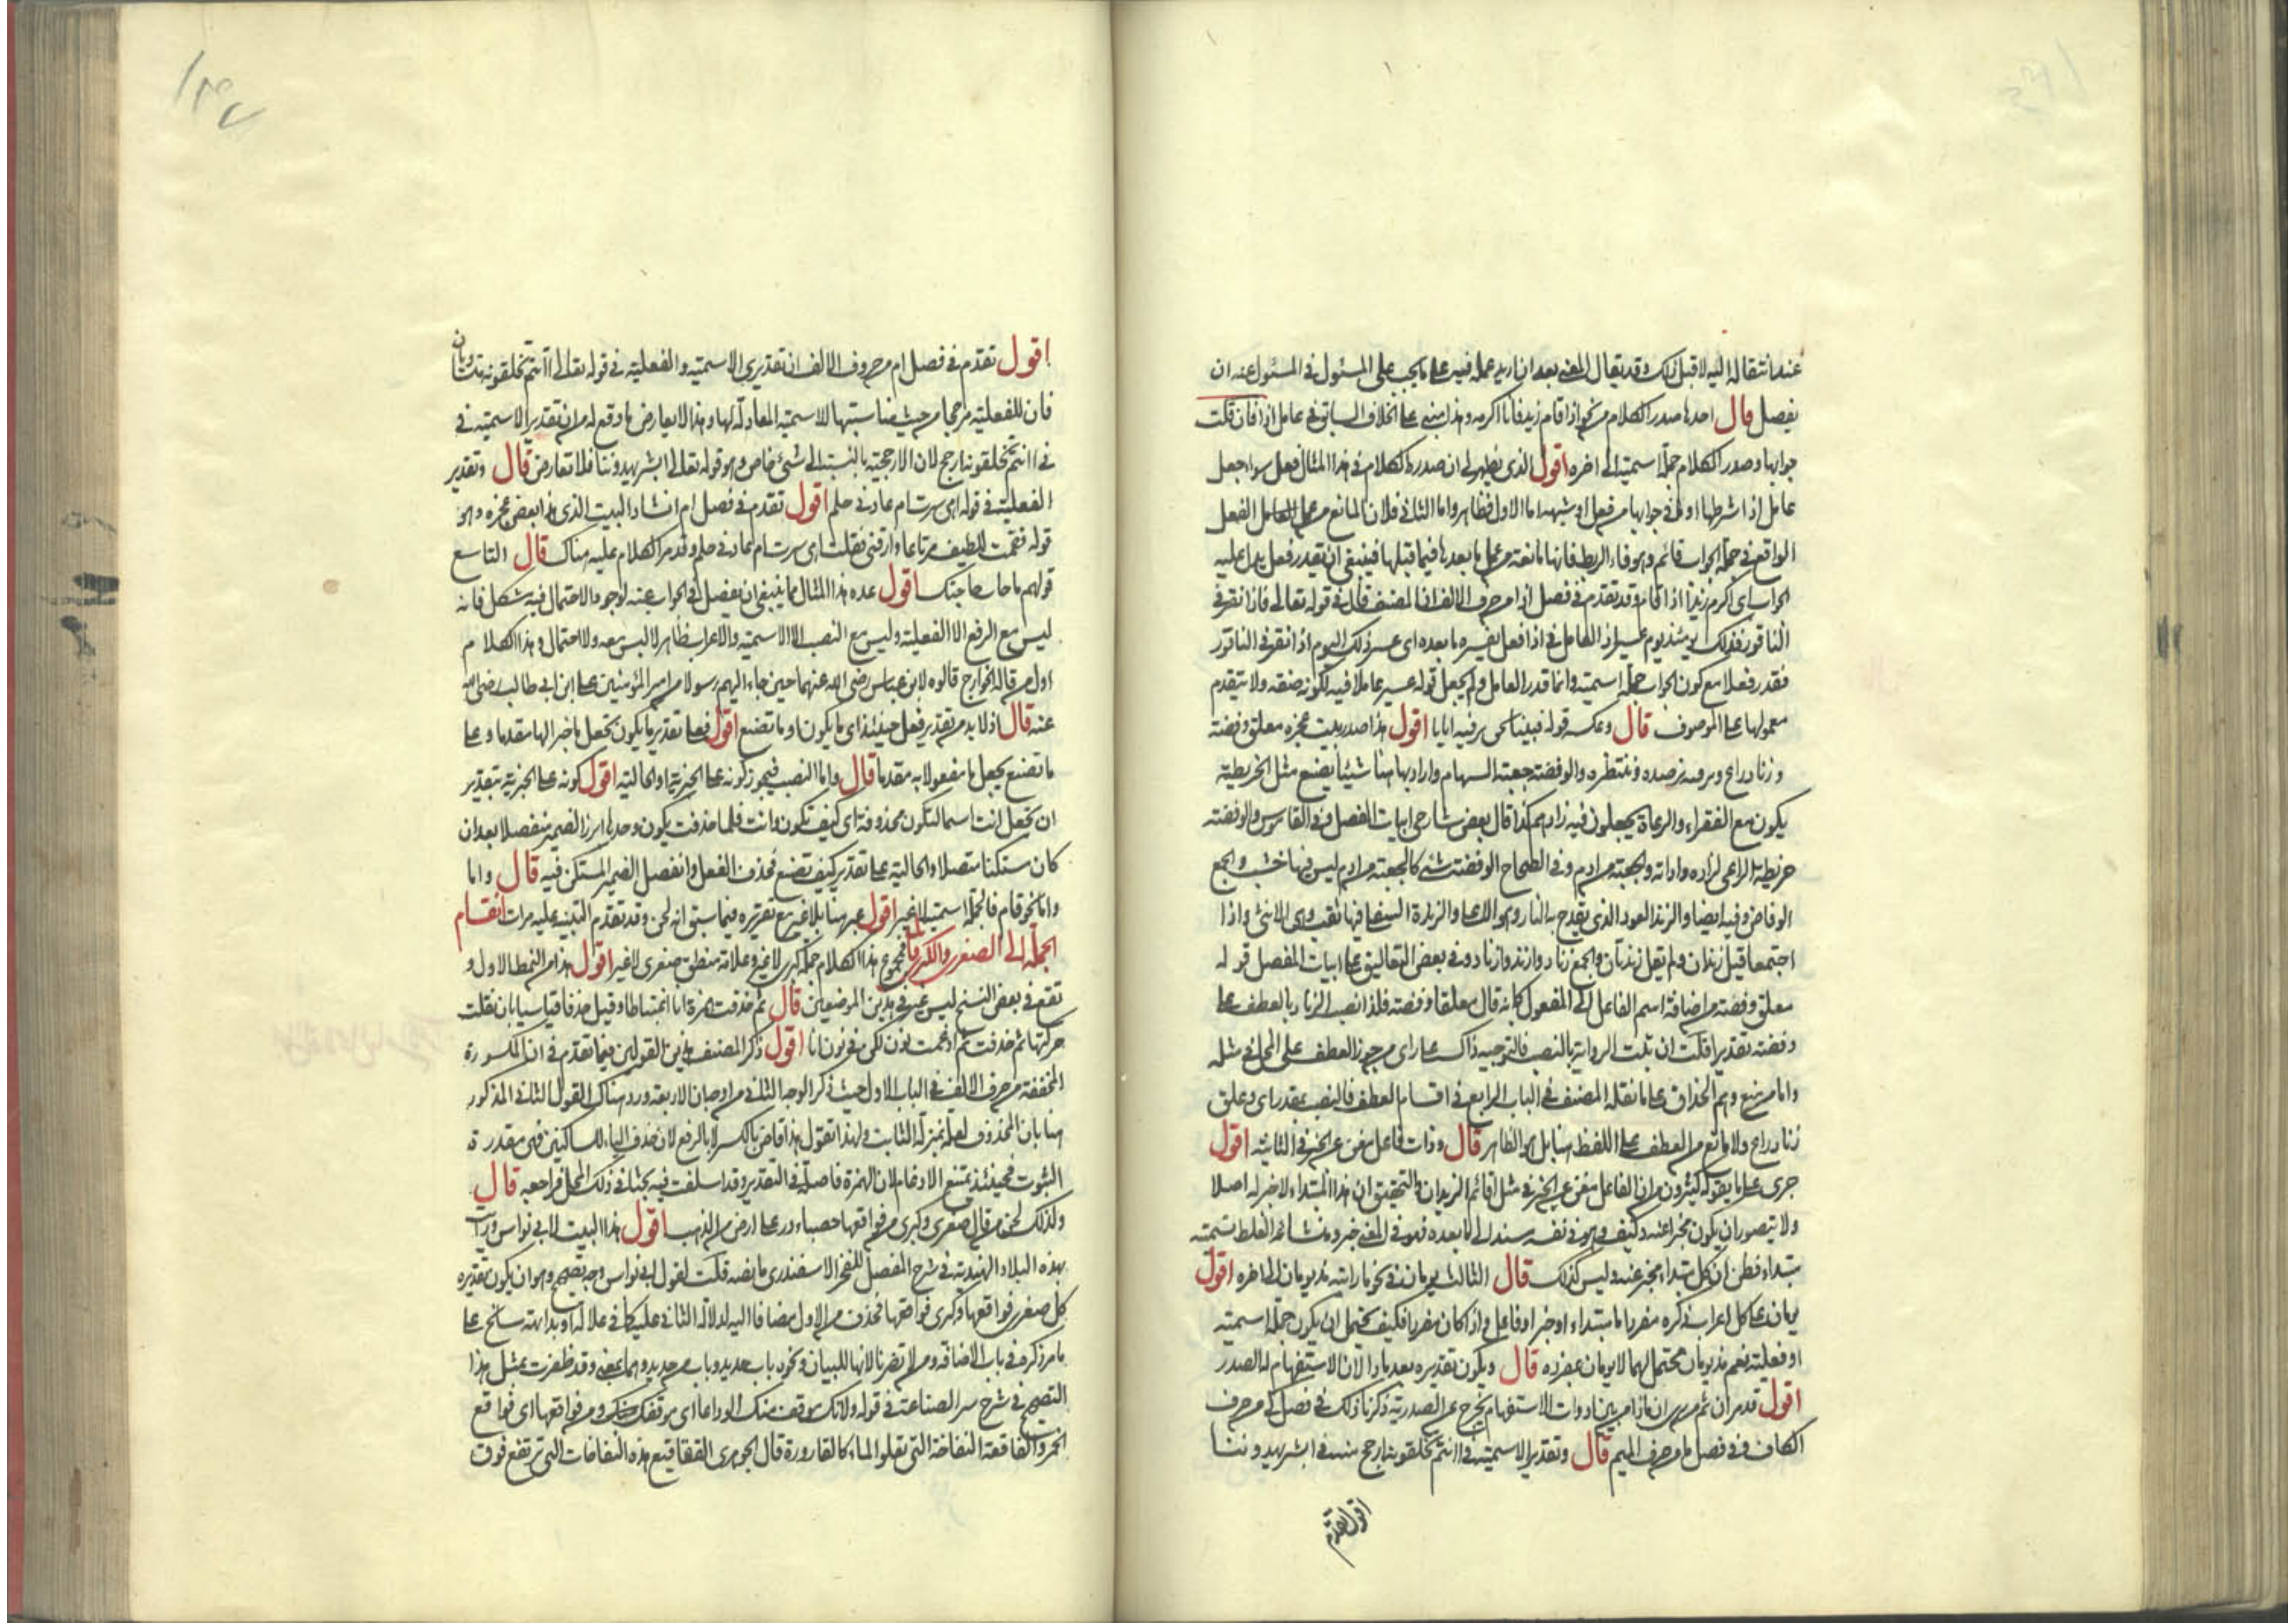 عند انتقاله اليه لا قبل ذلك وقد يقال المغني بعد ان اريد عمله فيه على ما يجب على المسئول في المسئول عنه ان
يفصل قال احدها صدر الكلام من نحو اذا قام زيد فانا اكرمه وهذا مبني على الخلاف السابق في عامل اذا فان قلت
جوابها وصدر الكلام جملة اسمية الى اخره اقول الذي يظهر لي ان صدر الكلام في هذا المثال فعل سواء جعل
عامل اذا شرطها او ما في جوابها من فعل او شبهه اما الاول فظاهر واما الثاني فلان المانع من عمل العامل الفعل
الواقع في جملة الجواب قائم وهو فاء الربط فانها مانعة من عمل ما بعدها فيما قبلها فينبغي ان يقدر فعل يدل عليه
الجواب اي اكرم زيدا اذا قام وقد تقدم في فصل اذا من حرف الالف ان المصنف قال في قوله تعالى فاذا نقر في
الناقور فذلك يومئذ يوم عسير اذ العامل في اذا فعل يفسره ما بعده اي عسر ذلك اليوم اذا نقر في الناقور
فقدر فعلا مع كون الجواب جملة اسمية وانما قدر العامل ولم يجعل قوله عسير عاملا فيه لكونه صفة ولا يتقدم
معمولها على الموصوف قال وعكسه قوله فبينا نحن نرقبه اتانا اقول هذا صدر بيت عجزه معلق وفضة
وزناد راع ونرقبه نرصده وننتظره والوفضة جعبة السهام واراد بها هنا شيئا يصنع مثل الخريطة
يكون مع الفقراء والرعاة يجعلون فيه زادهم كذا قال بعض شارحي ابيات المفصل وفي القاموس والوفضة
خريطة الراعي لزاده واداته والجعبة من ادم وفي الصحاح الوفضة شئ كالجعبة من ادم ليس فيها خشب والجمع
الوفاض وفيه ايضا والزند العود الذي يقدح به النار وهو الاعلى والزندة السفلى فيها ثقب وهي الانثى واذا
اجتمعا قيل زندان ولم يقل زندتان والجمع زناد وازند وازناد وفي بعض التعاليق على ابيات المفصل قوله
معلق وفضة من اضافة اسم الفاعل الى المفعول كانه قال معلقا وفضة فلذا نصب الزناد بالعطف على
وفضة تقديرا قلت ان ثبت الرواية بالنصب فالتوجيه ذاك على راي من جوز العطف على المحل في مثله
واما من منع وهم الحذاق على ما نقله المصنف في الباب الرابع في اقسام العطف فالنصب بمقدر اي وعلق
زناد راع ولا مانع من العطف على اللفظ هنا بل هو الظاهر قال وذات فاعل مغن عن الخبر في الثانية اقول
جرى على ما يقوله كثيرون من ان الفاعل مغن عن الخبر في مثل اقائم الزيدان والتحقيق ان هذا المبتداء لا خبر له اصلا
ولا يتصور ان يكون مخبرا عنه وكيف وهو في نفسه مسند الى ما بعده فهو في المعنى خبر ومنشأ هذا الغلط تسمية
مبتداء فظن ان كل مبتداء مخبر عنه وليس كذلك قال الثالث يومان في نحو ما رايته مذ يومان الى اخره اقول
يومان على كل اعراب ذكره مفرد اما مبتداء او خبر او فاعل واذا كان مفردا فكيف يحتمل ان يكون جملة اسمية
او فعلية نعم مذ يومان محتمل لهما لا يومان بمفرده قال ويكون تقديره بعد ماذا لان الاستفهام له الصدر
اقول قد مر ان ثم من يرى ان ماذا من بين ادوات الاستفهام يخرج عن الصدرية ذكرنا ذلك في فصل كي من حرف
الكاف وفي فصل ما من حرف الميم قال وتقدير الاسمية في اانتم تخلقونه ارجح منه في ابشر يهدوننا
اقول تقدم
اقول تقدم في فصل ام من حروف الالف ان تقديري الاسمية والفعلية في قوله تعالى اانتم تخلقونه متساويان
فان للفعلية مرجحا من حيث مناسبتها للاسمية المعادلة لها وهذا لا يعارض ما وقع له من ان تقدير الاسمية في
في اانتم تخلقونه ارجح لان الارجحية بالنسبة الى شئ خاص وهو قوله تعالى ابشر يهدوننا فلا تعارض قال وتقدير
الفعلية في قوله اهي سرت ام عادني حلم اقول تقدم في فصل ام انشاد البيت الذي هذا بعض عجزه وهو
قوله فقمت للطيف مرتاعا وارقني فقلت اهي سرت ام عادني حلم وقد مر الكلام عليه هناك قال التاسع
قولهم ما جاءت حاجتك اقول عده هذا المثال مما ينبغي ان يفصل في الجواب عنه لوجود الاحتمال فيه مشكل فانه
ليس مع الرفع الا الفعلية وليس مع النصب الا الاسمية والاعراب ظاهر لا لبس معه ولا احتمال وهذا الكلام
اول من قاله الخوارج قالوه لابن عباس رضي الله عنهما حين جاء اليهم رسولا من امير المؤمنين علي ابن ابي طالب رضي الله
عنه قال اذ لا بد من تقدير فعل حينئذ اي ما يكون او ما تصنع اقول فعلى تقدير ما يكون تجعل ما خبر الها مقدما وعلى
ما تصنع يجعل ما مفعولا به مقدما قال واما النصب فيجوز كونه على الخبرية او الحالية اقول كونه على الخبرية بتقدير
ان تجعل انت اسما لتكون محذوفة اي كيف تكون وانت فلما حذفت يكون وحدها ابرز الضمير منفصلا بعد ان
كان مستكنا متصلا والحالية على تقدير كيف تصنع فحذف الفعل وانفصل الضمير المستكن فيه قال واما
واما نحو قام فالجملة اسمية لا غير اقول عبر هنا بلا غير مع تقريره فيما سبق انه لحن وقد تقدم التنبيه عليه مرات انقسام
الجملة الى الصغرى والكبرى قال فمجموع هذا الكلام جملة كبرى لا غير وغلامه منطلق صغرى لا غير اقول هذا من النمط الاول و
تقع في بعض النسخ ليس غير في هذين الموضعين قال ثم حذفت همزة انا اعتباطا وقيل حذفا قياسيا بان نقلت
حركتها ثم حذفت ثم ادغمت نون لكن في نون انا اقول ذكر المصنف هذين القولين فيما تقدم في ان المكسورة
المخففة من حرف الالف في الباب الاول حيث ذكر الوجه الثاني من اوجه ان الاربعة ورد هناك القول الثاني المذكور
هنا بان المحذوف لعلة بمنزلة الثابت ولهذا تقول هذا قاض بالكسر لا بالرفع لان حذف الياء للساكنين فهي مقدرة
الثبوت فحينئذ يمتنع الادغام لان الهمزة فاصلة في التقدير وقد اسلفت فيه بحثا في ذلك المحل فراجعه قال
ولذلك لحن من قال صغرى وكبرى من فواقعها حصباء در على ارض من الذهب اقول هذا البيت لابي نواس ورايت
بهذه البلاد الهندية في شرح المفصل للفخر الاسفندري ما نصه قلت لقول ابي نواس وجه تصحيح وهو ان يكون تقديره
كل صغرى فواقعها وكبرى فواقعها فحذف من الاول مضافا اليه لدلالة الثاني عليه كما في علالة او بداهة سابح على
ما مر ذكره في باب الاضافة ومن لا تضرنا لانها للبيان ونحوه باب حديد وباب من حديد وهما بمعنى وقد ظفرت بمثل هذا
التصحيح في شرح سر الصناعة في قوله ولا يك موقف منك الوداعا اي موقفك ومن فواقعها اي فواقع
الخمر والفاقعة النفاخة التي تعلوا الماء كالقارورة قال الجوهري الفقاقيع هذه النفاخات التي ترتفع فوق